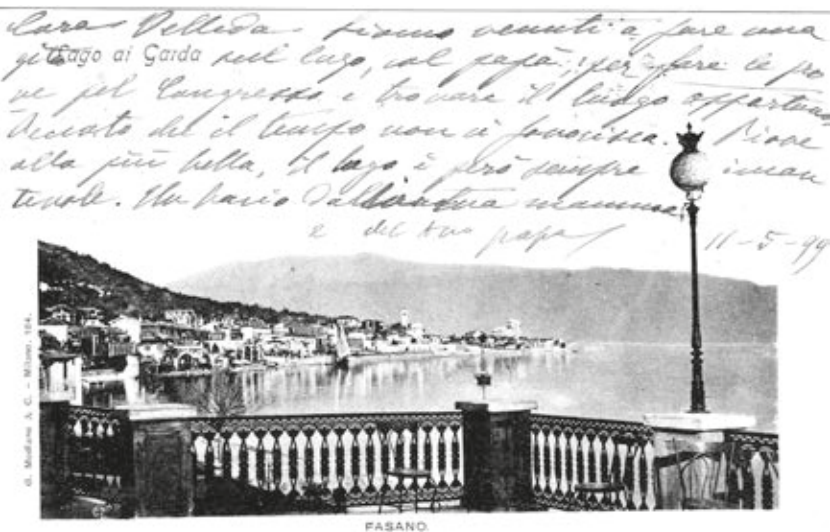 Cara Velleda siamo venuti a fare una
gita sul lago, col papà, per fare le pro
Lago di Garda
ve pel Congresso e trovare il luogo opportuno
che il tempo non ci favorisca. Piove
alla più bella, il lago è però sempre incan
tevole. Un bacio dalla tua mamma
e del tuo papà
11-5-99
G. Modiano & C. - Milano. 184.
FASANO.